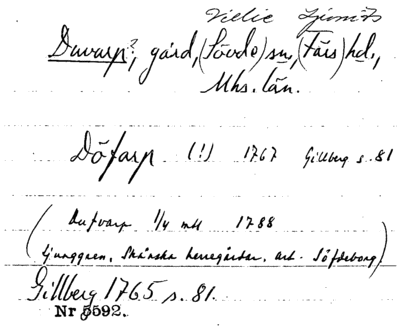 Duvarp?, gård, (Sövde) sn, (Färs) hd.,
Mhs. län.
Döfarp (!) 1767 Gillberg s. 81
(Dufvarp 1/4 mtl 1788
Ljunggren, Skånska herregårdar, art. Söfdeborg)
Gillberg 1765 s. 81.
Nr 5592.